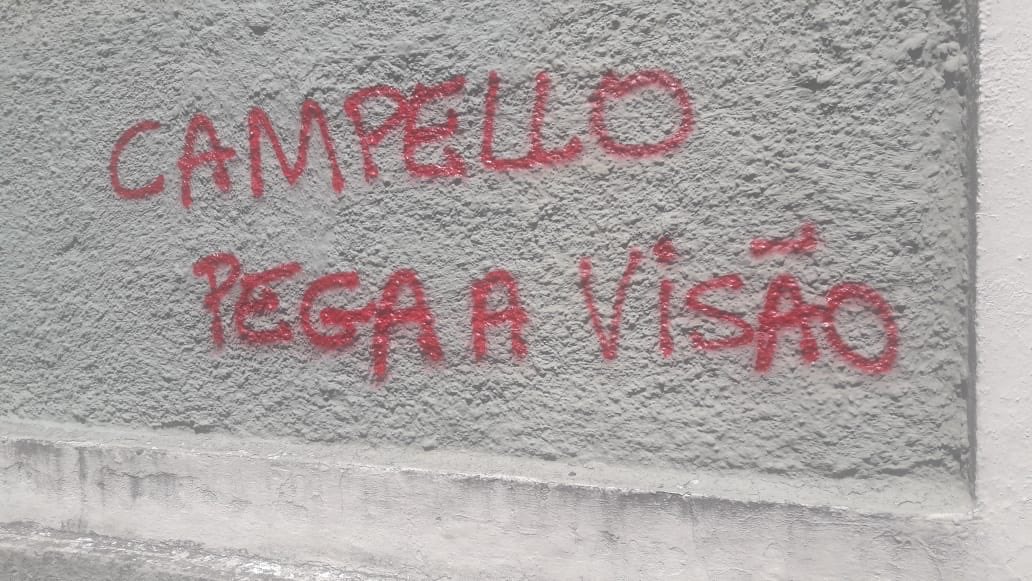 CAMPELLO
PEGA A VISÃO